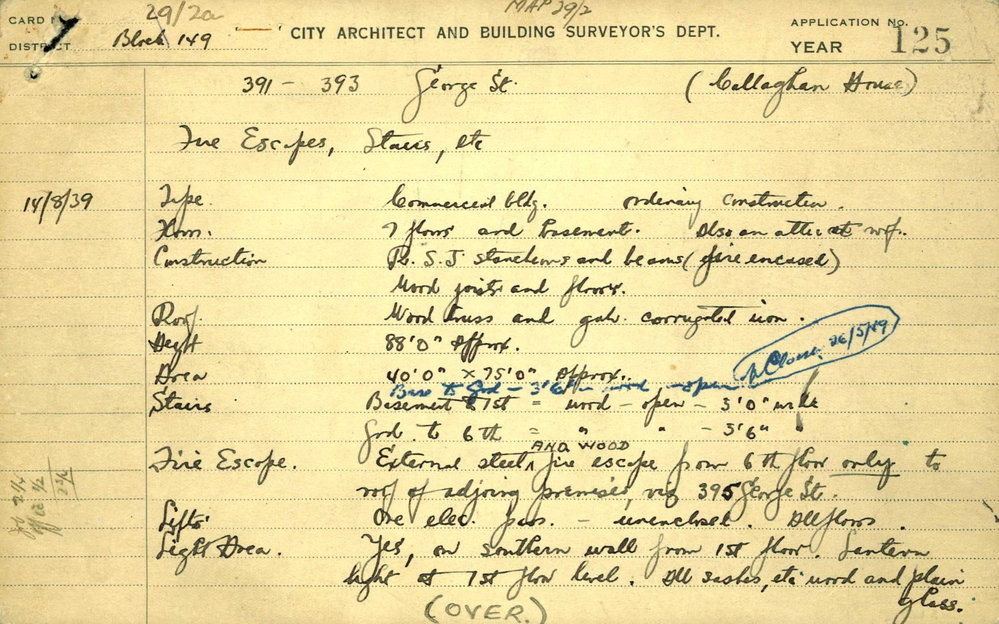 CARD No. 29/2a MAP 29/2
DISTRICT Block 149 CITY ARCHITECT AND BUILDING SURVEYOR'S DEPT. APPLICATION NO.
YEAR 125
391 - 393 George St. (Callaghan House)
Fire Escapes, Stairs, etc
14/8/39 Type. Commercial bldg. ordinary construction.
Floors. 7 floors and basement. Also an attic at roof.
Construction R. S. J. stanchions and beams (fire encased)
Wood joists and floors.
Roof. Wood truss and galv. corrugated iron.
Height 88'0" Approx.
Area 40'0" x 75'0" Approx.
Base to Grd - 3'6" - wood, - open 26/5/49
Stairs Basement to 1st = wood - open - 3'0" wide
Grd. to 6th = " " - 3'6" "
AND WOOD
Fire Escape. External steel fire escape from 6th floor only to
roof of adjoing premises, viz 395 George St.
Lifts One elec. pass. - unenclosed. All floors.
Light Area. Yes, on southern wall from 1st floor. Lantern
light at 1st floor level. All sashes, etc wood and plain
glass.
(OVER.)